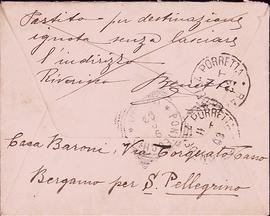 Partito per destinazione
ignota senza lasciare
l'indirizzo
PORRETTA
PORRETTA
Casa Baroni, Via Torquato Tasso
Bergamo per S. Pellegrino